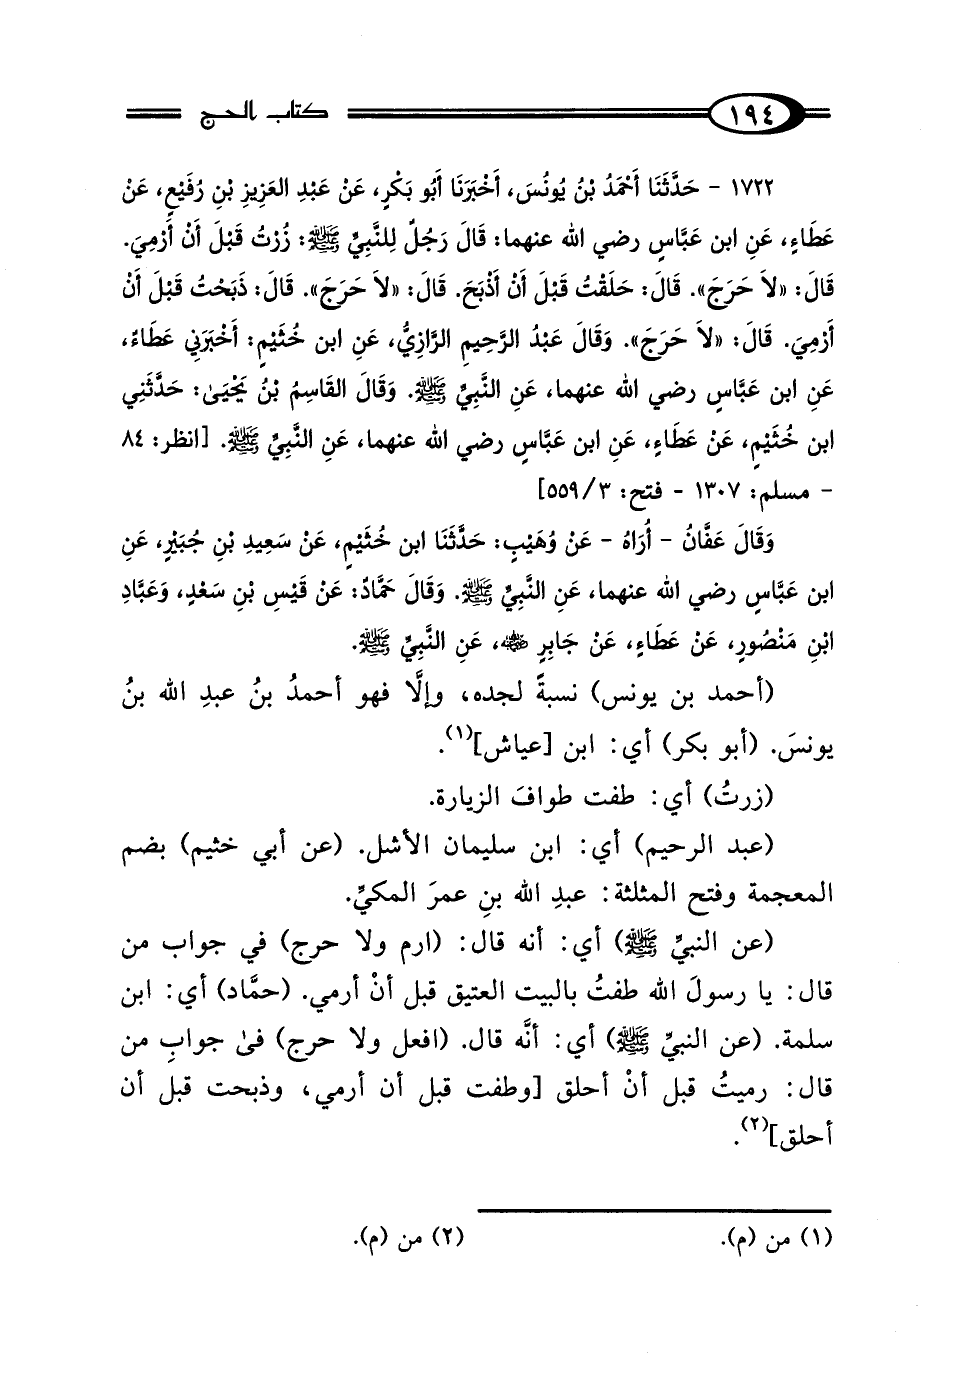 ١٩٤ كتاب الحج
١٧٢٢ - حَدَّثَنَا أَحْمَدُ بْنُ يُونُسَ، أَخْبَرَنَا أَبُو بَكْرٍ، عَنْ عَبْدِ العَزِيزِ بْنِ رُفَيْعٍ، عَنْ
عَطَاءٍ، عَنِ ابن عَبَّاسٍ رضي الله عنهما: قَالَ رَجُلٌ لِلنَّبِيِّ ﷺ: زُرْتُ قَبْلَ أَنْ أَرْمِيَ.
قَالَ: «لاَ حَرَجَ». قَالَ: حَلَقْتُ قَبْلَ أَنْ أَذْبَحَ. قَالَ: «لاَ حَرَجَ». قَالَ: ذَبَحْتُ قَبْلَ أَنْ
أَرْمِيَ. قَالَ: «لاَ حَرَجَ». وَقَالَ عَبْدُ الرَّحِيمِ الرَّازِيُّ، عَنِ ابن خُثَيْمٍ: أَخْبَرَنِي عَطَاءٌ،
عَنِ ابن عَبَّاسٍ رضي الله عنهما، عَنِ النَّبِيِّ ﷺ. وَقَالَ القَاسِمُ بْنُ يَحْيَىٰ: حَدَّثَنِي
ابن خُثَيْمٍ، عَنْ عَطَاءٍ، عَنِ ابن عَبَّاسٍ رضي الله عنهما، عَنِ النَّبِيِّ ﷺ. [انظر: ٨٤
- مسلم: ١٣٠٧ - فتح: ٣/ ٥٥٩]
وَقَالَ عَفَّانُ - أُرَاهُ - عَنْ وُهَيْبٍ: حَدَّثَنَا ابن خُثَيْمٍ، عَنْ سَعِيدِ بْنِ جُبَيْرٍ، عَنِ
ابن عَبَّاسٍ رضي الله عنهما، عَنِ النَّبِيِّ ﷺ. وَقَالَ حَمَّادٌ: عَنْ قَيْسِ بْنِ سَعْدٍ، وَعَبَّادِ
ابْنِ مَنْصُورٍ، عَنْ عَطَاءٍ، عَنْ جَابِرٍ ﵁، عَنِ النَّبِيِّ ﷺ.
(أحمد بن يونس) نسبةً لجده، وإلَّا فهو أحمدُ بنُ عبدِ الله بنُ
يونسَ. (أبو بكر) أي: ابن [عياش](١).
(زرتُ) أي: طفت طوافَ الزيارة.
(عبد الرحيم) أي: ابن سليمان الأشل. (عن أبي خثيم) بضم
المعجمة وفتح المثلثة: عبدِ الله بنِ عمرَ المكيِّ.
(عن النبيِّ ﷺ) أي: أنه قال: (ارم ولا حرج) في جواب من
قال: يا رسولَ الله طفتُ بالبيت العتيق قبل أنْ أرمي. (حمَّاد) أي: ابن
سلمة. (عن النبيِّ ﷺ) أي: أنَّه قال. (افعل ولا حرج) فىٰ جوابِ من
قال: رميتُ قبل أنْ أحلق [وطفت قبل أن أرمي، وذبحت قبل أن
أحلق](٢).
(١) من (م). (٢) من (م).